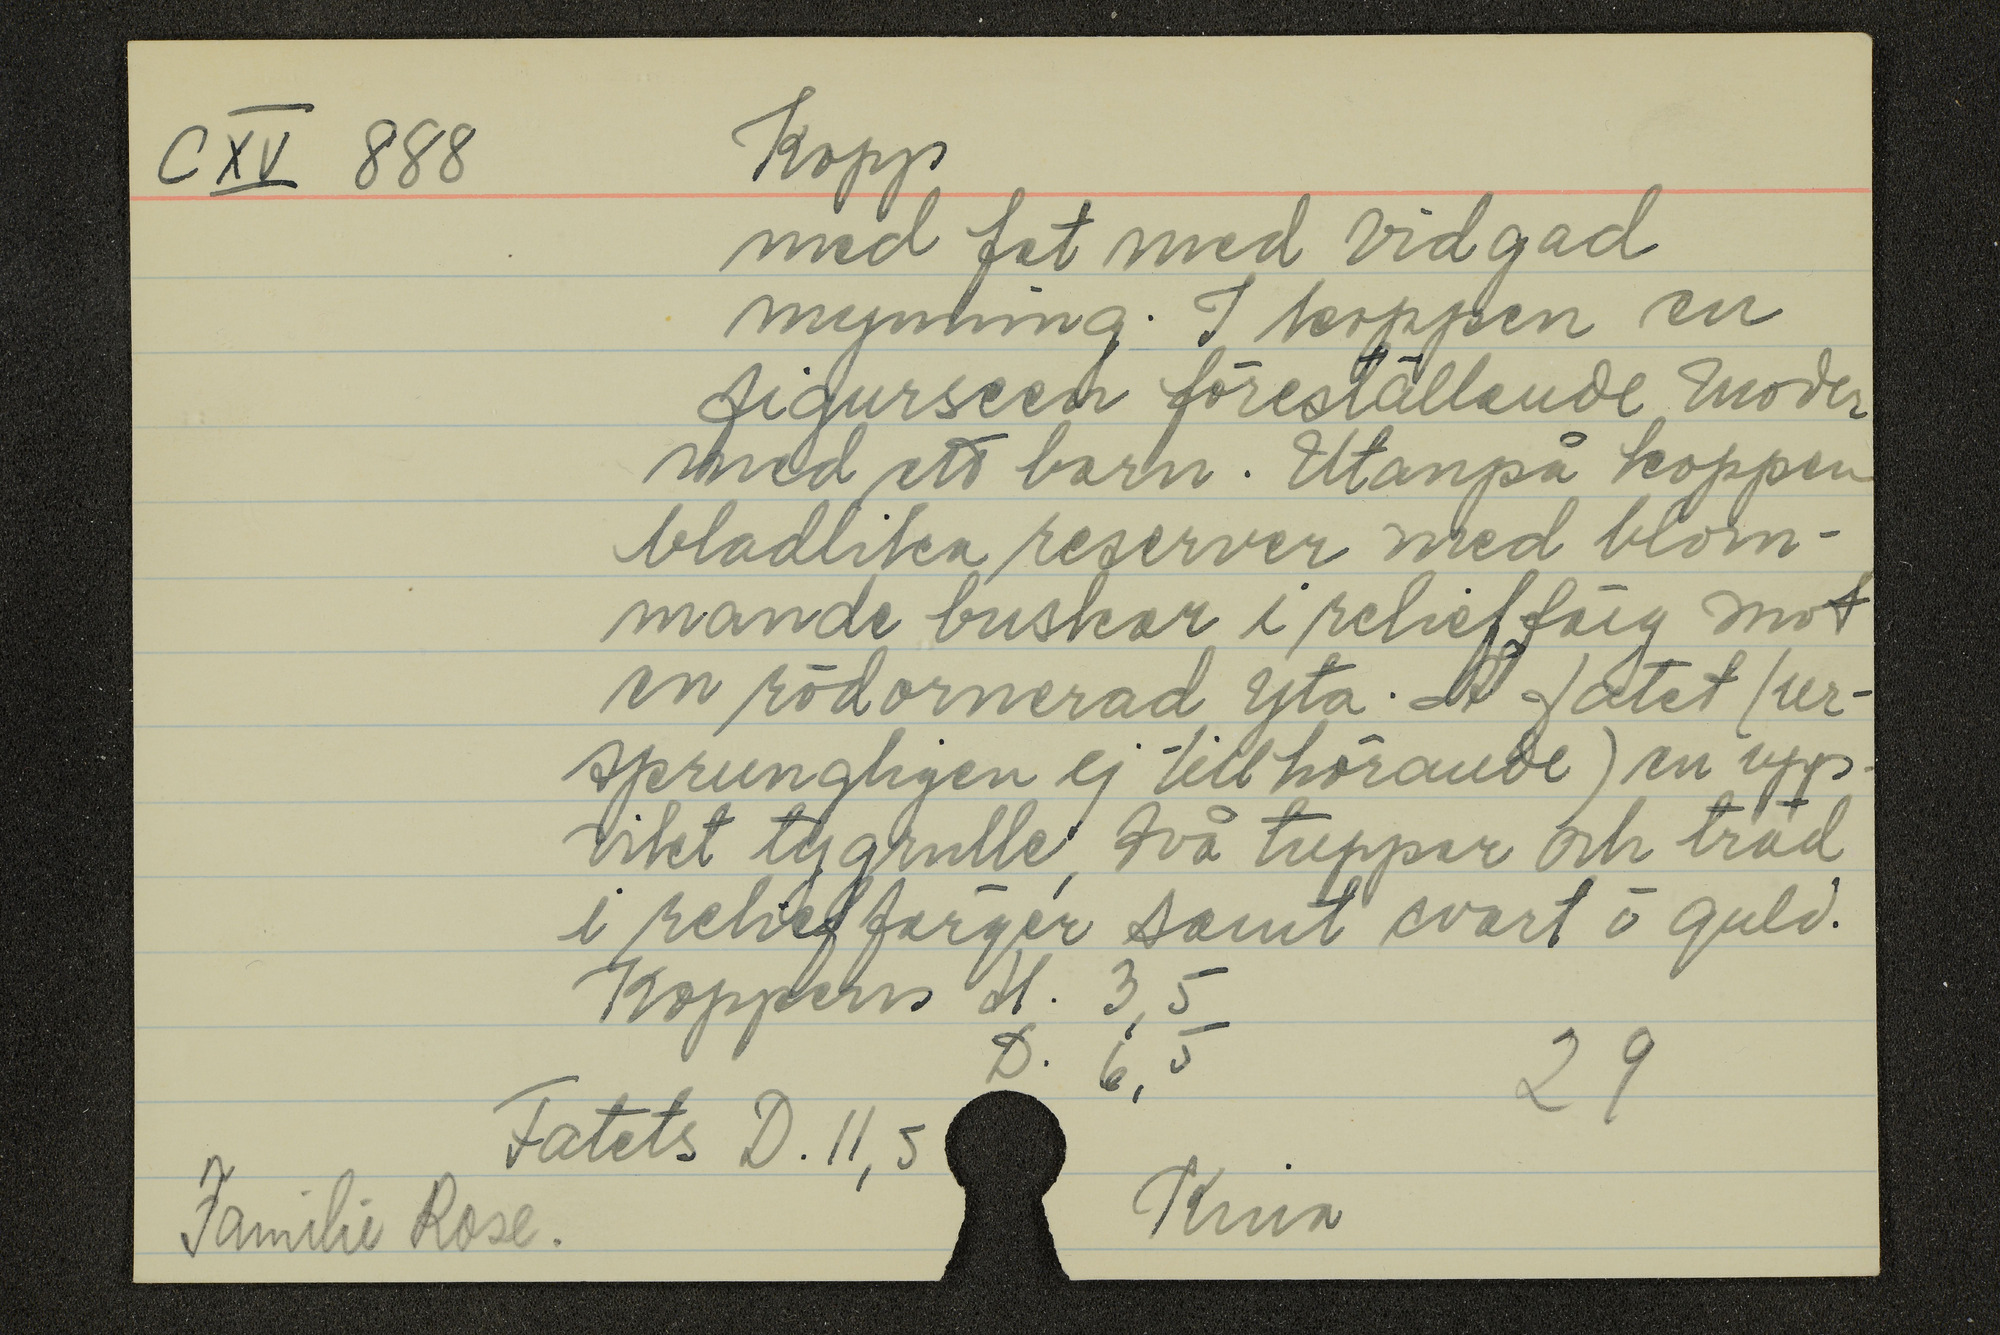 C XV 888 Kopp
med fat med vidgad
mynning. I koppen en
figurscen föreställande moder
med ett barn. Utanpå koppen
bladlika reserver med blom-
mande buskar i relieffärg mot
en rödornerad yta. På fatet (ur-
sprungligen ej tillhörande) en upp-
vikt tygrulle, två tuppar och träd
i relieffärger samt svart o guld.
Koppens H. 3,5
D. 6,5
29
Fatets D. 11,5
Familie Rose. Kina